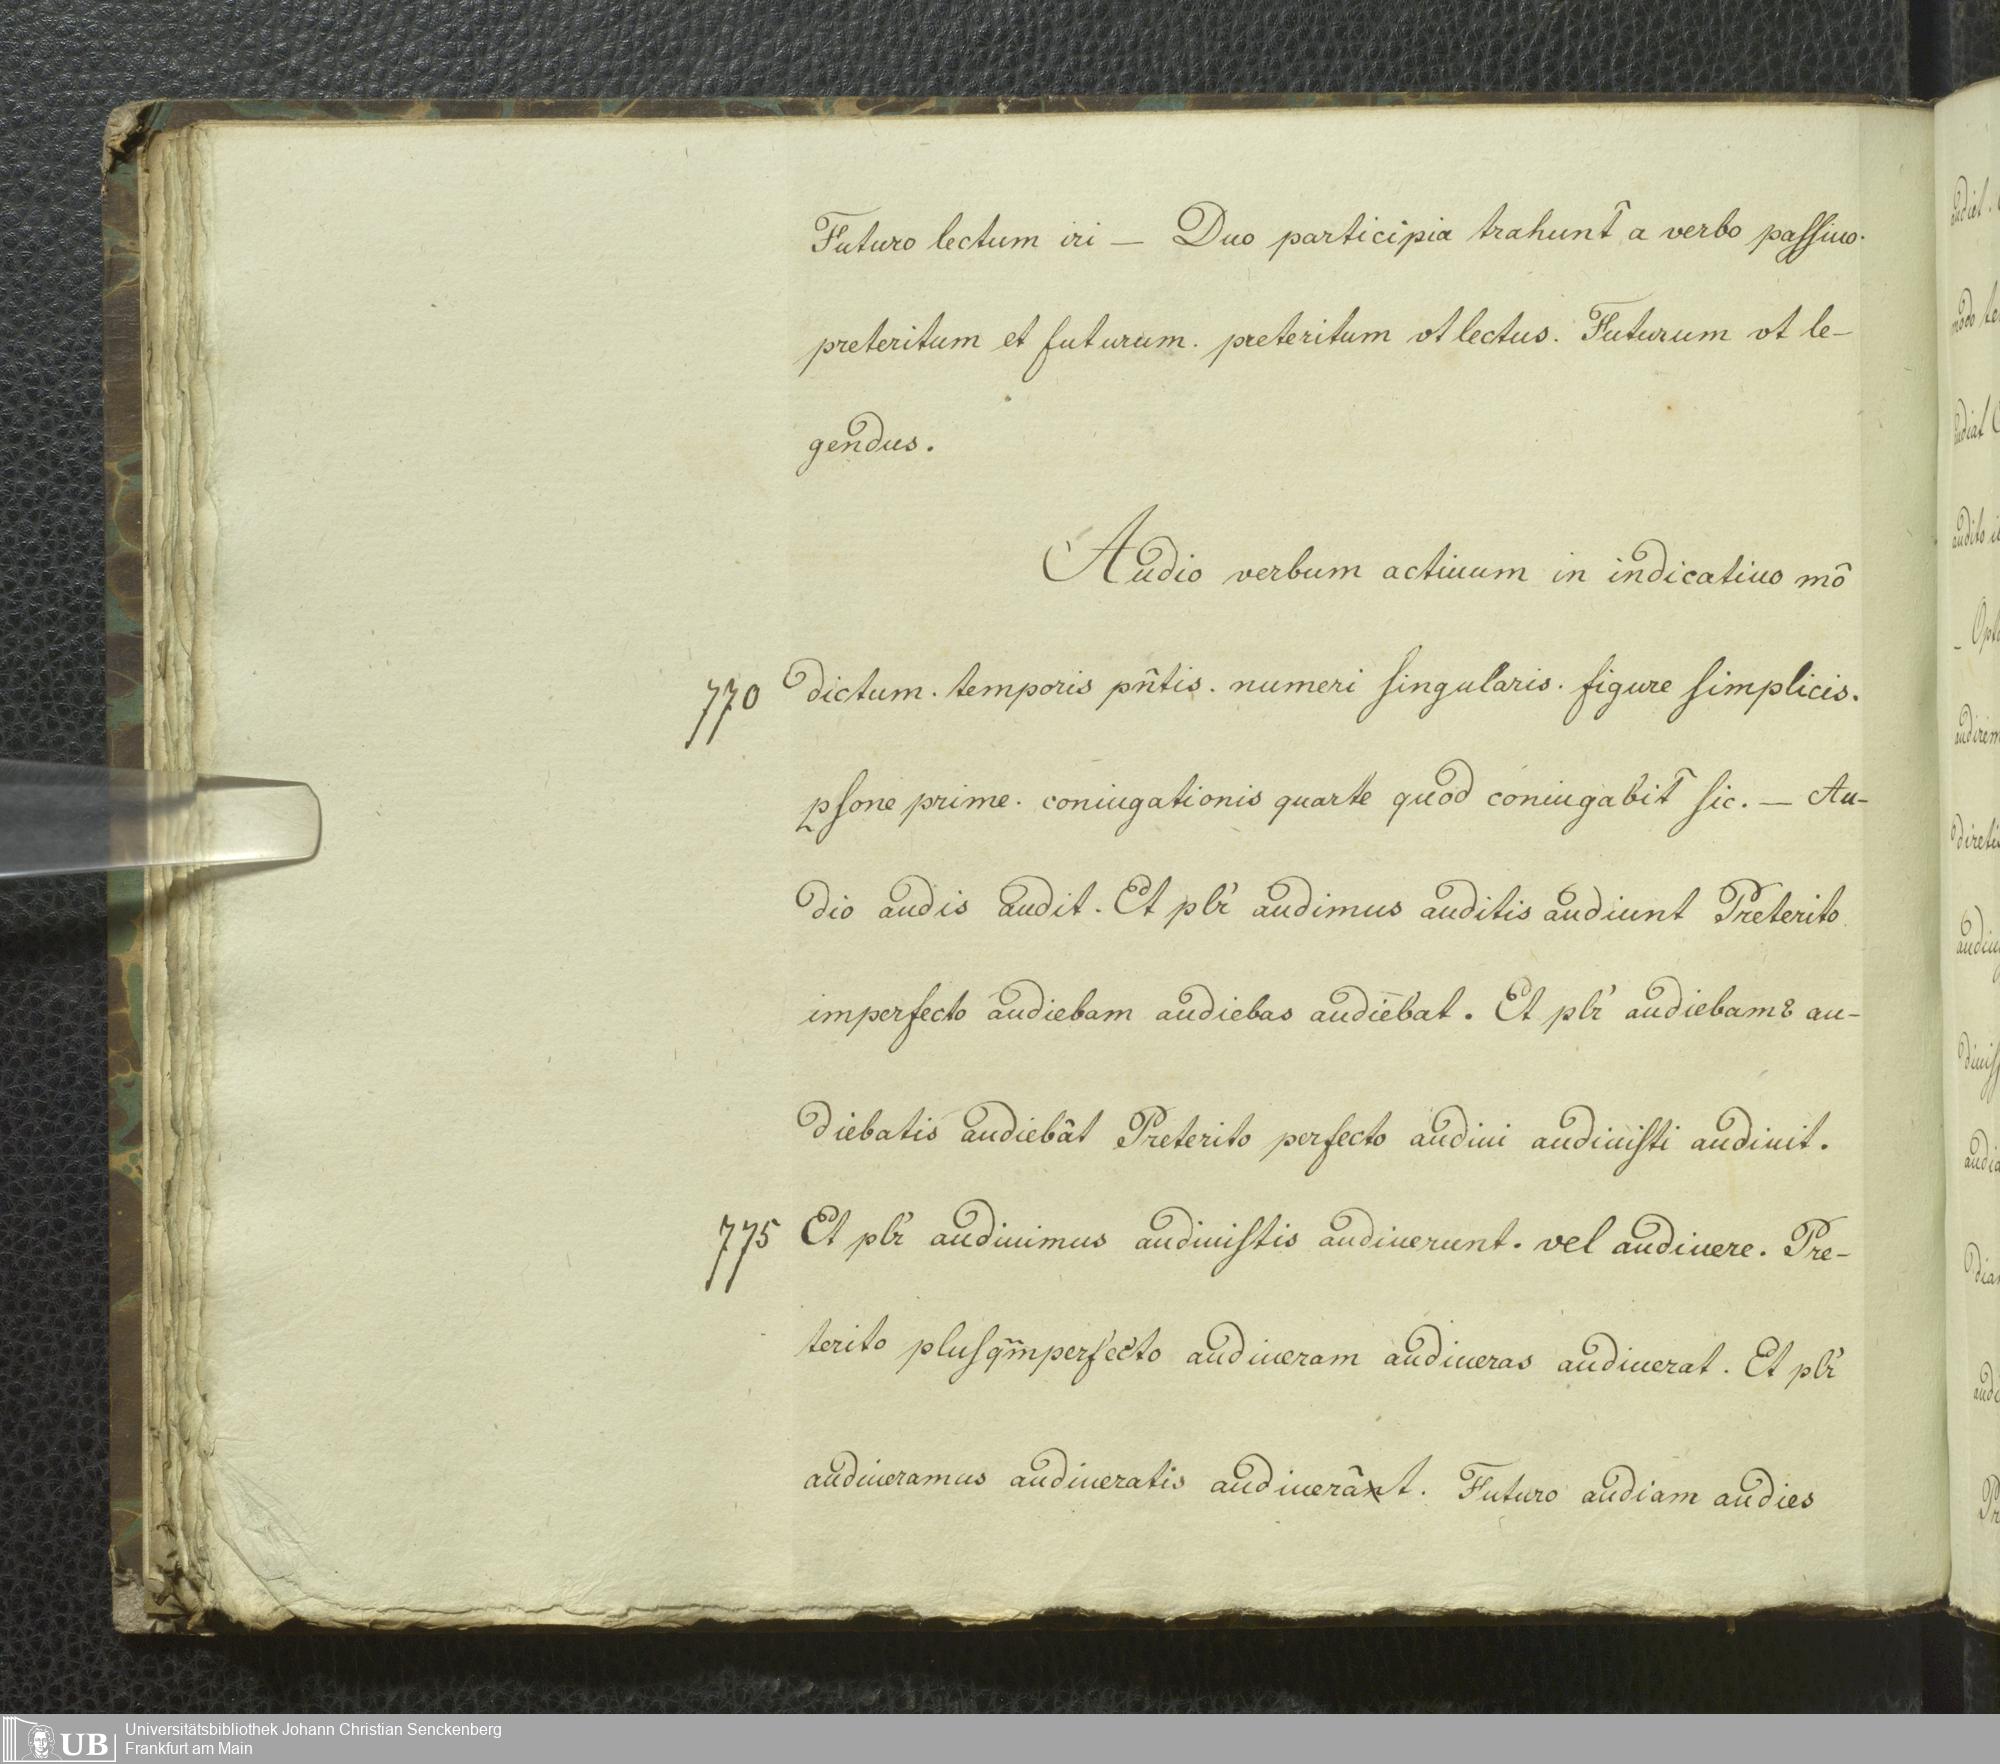 Futuro lectum iri — Duo participia trahunt̃ a verbo paſſiuo.
preteritum et futurum. preteritum vt lectus. Futurum vt le-
gendus.
Audio verbum actiuum in indicatiuo mô
770 dictum. temporis pñtis. numeri ſingularis. figure ſimplicis.
ꝑſone prime. coniugationis quarte quod coniugabit̃ ſic. — Au-
dio audis audit. Et plr̃ audimus auditis audiunt Preterito
imperfecto audiebam audiebas audiebat. Et plr̃ audiebam9 au-
diebatis audiebãt Preterito perfecto audiui audiuiſti audiuit.
775 Et plr̃ audiuimus audiuiſtis audiuerunt. vel audiuere. Pre-
terito pluſqm̃perfecto audiueram audiueras audiuerat. Et plr̃
audiueramus audiueratis audiuerãt. Futuro audiam audies
UB
Universitätsbibliothek Johann Christian Senckenberg
Frankfurt am Main